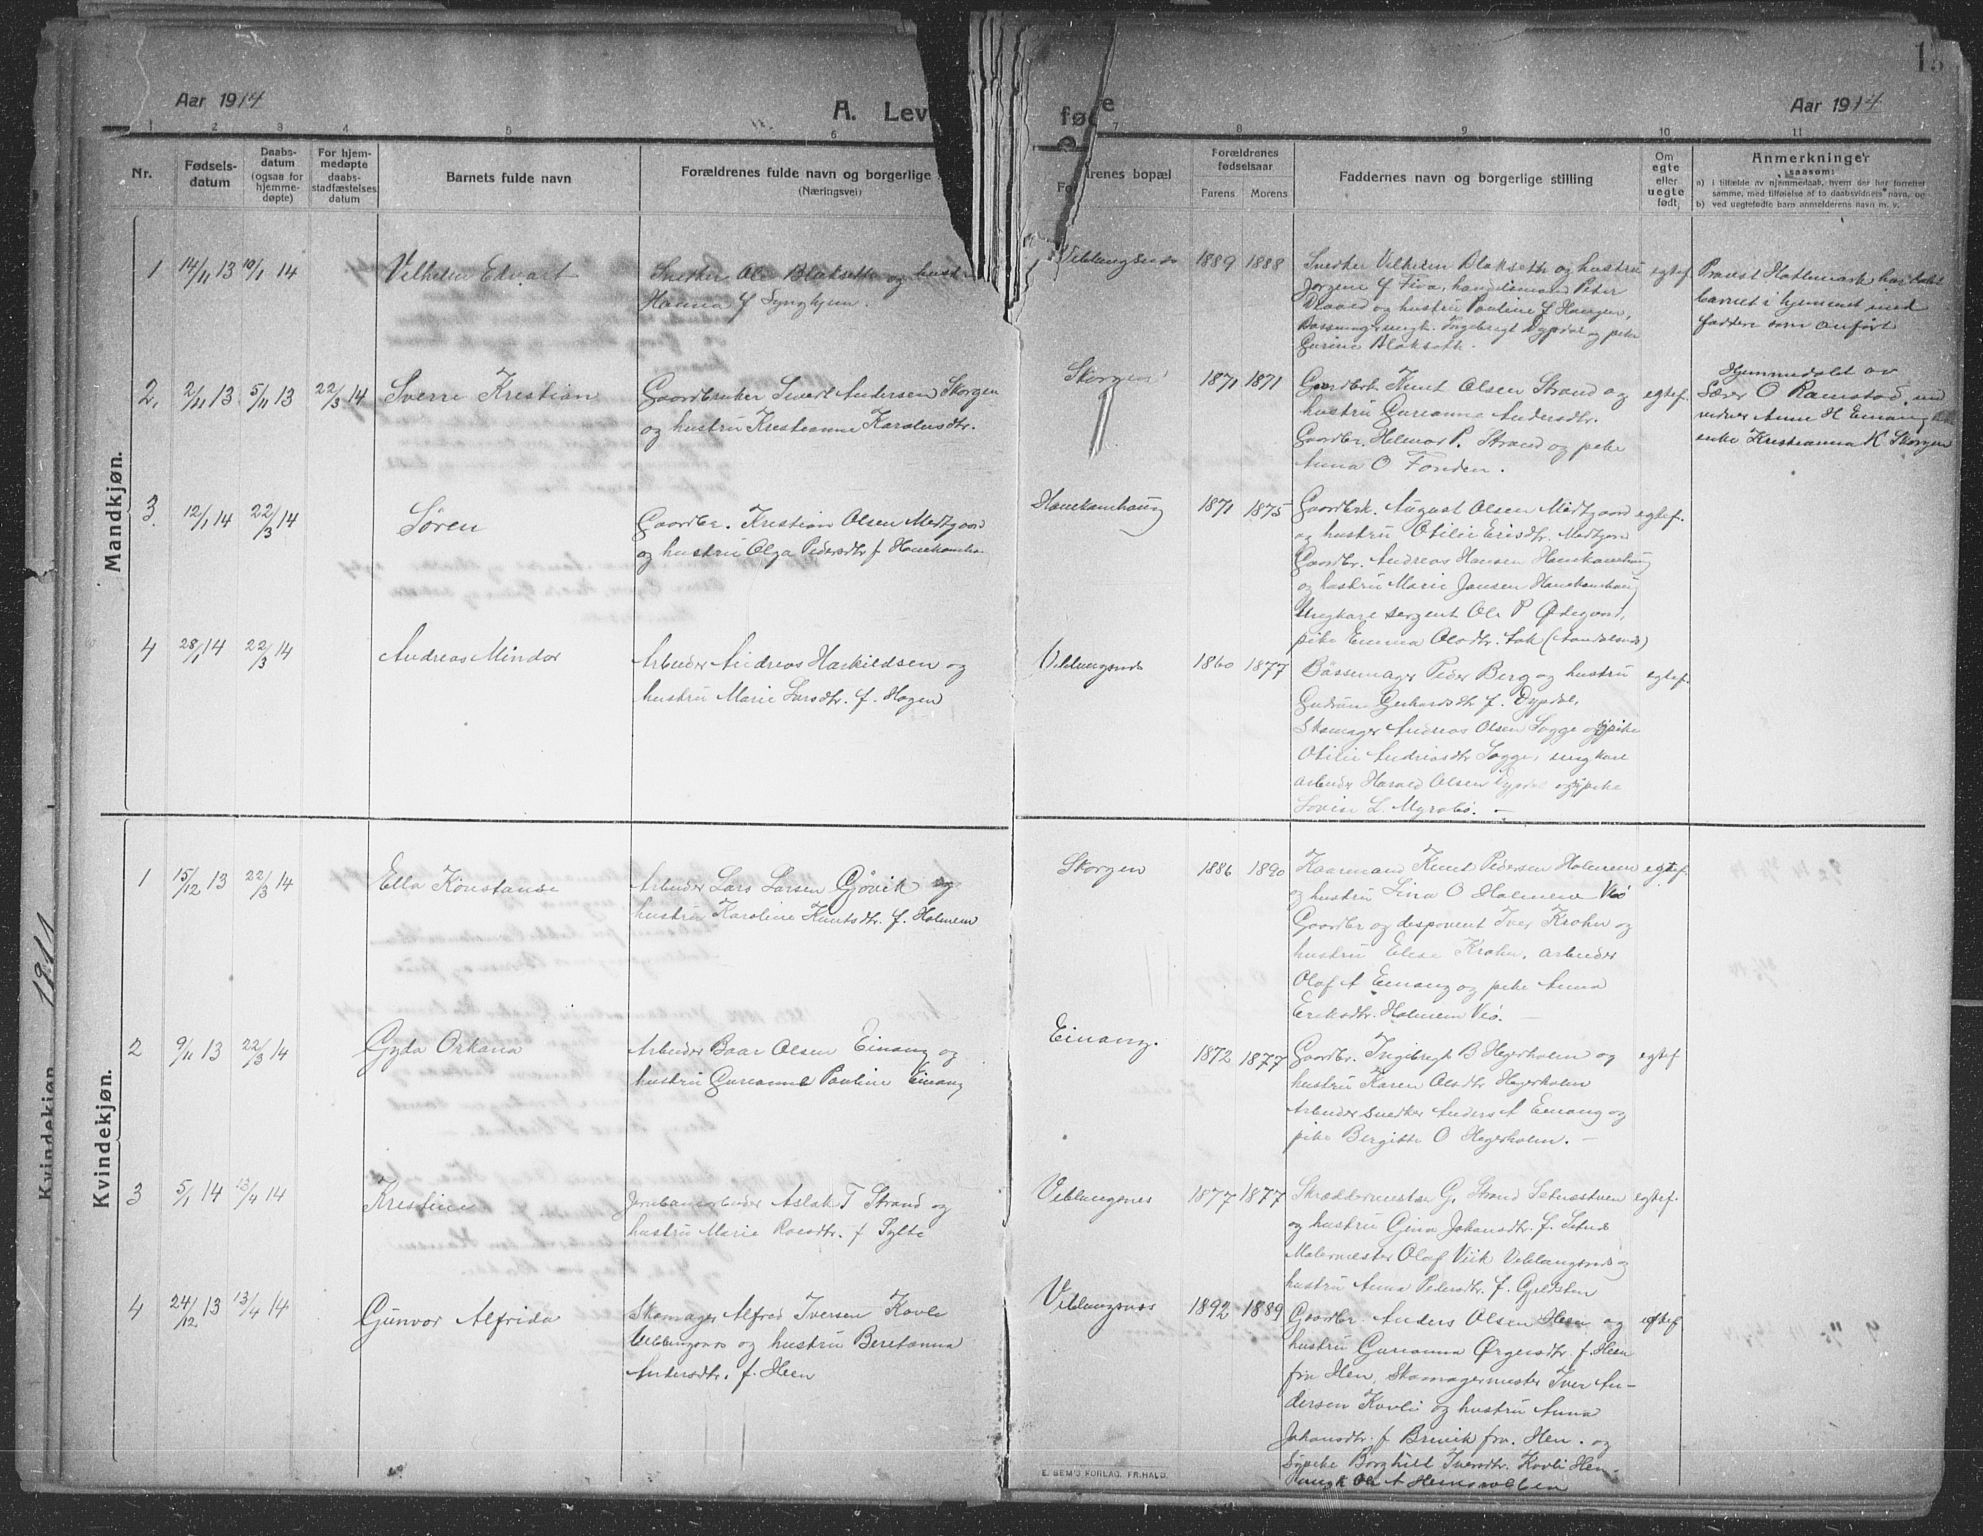 Aar 1914
A. Lev
føde
Aar 1914
15
1 2 3 4 5 6 7 8 9 10 11
Nr.
Fødsels-
datum
Daabs-
datum
(ogsaa for
hjemme-
døpte)
For hjem-
medøpte
daabs-
stadfæstelses
datum
Barnets fulde navn
Forældrenes fulde navn og borgerlige
(Næringsvei)
drenes bopæl
Forældrenes
fødselsaar
Farens Morens
Faddernes navn og borgerlige stilling
Om
egte
eller
uegte
født
Anmerkninger
saasom:
a) i tilfælde av hjemmedaab, hvem der har forrettet
samme, med tilføielse af to daabsvidners navn, og
b) ved uegtefødte barn anmelderens navn m. v.
Mandkjøn.
1 14/11 13 10/1 14 Vilhelm Edvart
Snedker Ole Blakseth og hustr
Hanna f Lyngheim.
Veblungsnes 1889 1888
Snedker Vilhelm Blakseth og hustru
Jørgine f Fiva, handelsmand Peter
og hustru Pauline f Haugen,
Ingebrigt Dypdal og pike
Gurine Blakseth.
egtef.
Provst Hatlemark har døbt
barnet i hjemmet med
faddere som anført
2. 2/11 13 5/11 13 22/3 14 Sverre Kristian
Gaardbruker Sivert Andersen Skorgen
og hustru Kristianne Karolusdtr.
Skorgen 1871 1871
Gaardbr Knut Olsen Strand og
hustru Gurianna Andersdtr.
Gaardbr. Helmar P. Strand og pike
Anna O Fonden.
egtef.
Hjemmedøbt av
Lærer O Ramstad,
Anne H Einang
enke Kristianna K Skorgen
3. 12/1 14 22/3 14 Søren
Gaardbr. Kristian Olsen Medtgaard
og hustru Olga Pedersdtr f Hanekamhau
Hanekamhaug 1871 1875
Gaardbrk. August Olsen Midtgaard
og hustru Otilie Ericsdtr. Midtgaard
Gaardbr. Andreas Hansen Hanekamhaug
og hustru Marie Jansen Hanekamhaug
Ungkare sergent Ole P Ødegaard,
pike Emma Olsdtr. Lak (Aandalsnes)
egtef.
4 28/1 14 22/3 14 Andreas Mindor
Arbeider Andreas Haskildsen og
hustru Marie Larsdtr. f. Hagen
Veblungsnes 1860 1877
Bøssemager Peder Berg og hustru
Gudrun Gerhardsdtr f. Dypdal,
Skomager Andreas Olsen Sogge og pike
Otilie Andreasdtr Sogge, ungkare
arbeider Harald Olsen Dypdal og pike
Lovise L. Myrabø. —
egtef.
Kvindekjøn.
1 15/12 13 22/3 14 Ella Konstanse
Arbeider Lars Larsen Gjøvik og
hustru Karoline Knutsdtr. f. Holmem
Skorgen 1886 1890
Kaarmand Knut Pedersen Holmem
og hustru Lina O Holmem Veø
Gaardbr og desponent Iver Krohn og
hustru Elise Krohn, arbeider
Olaf A Einang og pike Anna
Eriksdtr. Holmem Veø. —
egtef.
2 9/11 13 22/3 14 Gyda Orkana
Arbeider Baar Olsen Einang og
hustru Gurianna Pauline Einang
Einang. 1872 1877
Gaardbr. Ingebregt B Hegerholm og
hustru Karen Olsdtr Hegerholm
Arbeider snedker Anders A Einang og
pike Bergitte O Hegerholm. —
egtef
3 5/1 14 13/4 14 Kristine
Jernbanearbeider Aslak T Strand og
hustru Marie Roesdtr. f Sylte
Veblungsnes 1877 1877
Skræddermester G. Strand
og hustru Gina Johansdtr. f. Setnes
Malermester Olaf Viik Veblungsnes og
hustru Anna Pedersdtr f. Gjeldsten
egtef.
4 24/12 13 13/4 14 Gunvor Alfrida
Skomager Alfred Iversen Kavli
Veblungsnes og hustru Beretanna
Andersdtr. f. Heen
Veblungsnes 1892 1889
Gaardbr. Anders Olsen Hen og
hustru Gurianna Ørgersdtr. f. Heen
fra Hen, Skomagermester Iver An-
dersen Kavli og hustru Anna
Johansdtr. f Brevik fra Hen. og
Sypike Borghild Iversdtr. Kavli Hen
Ungk Ole A
egtef
E. SEM'S FORLAG, FR.HALD.
Kvindekjøn